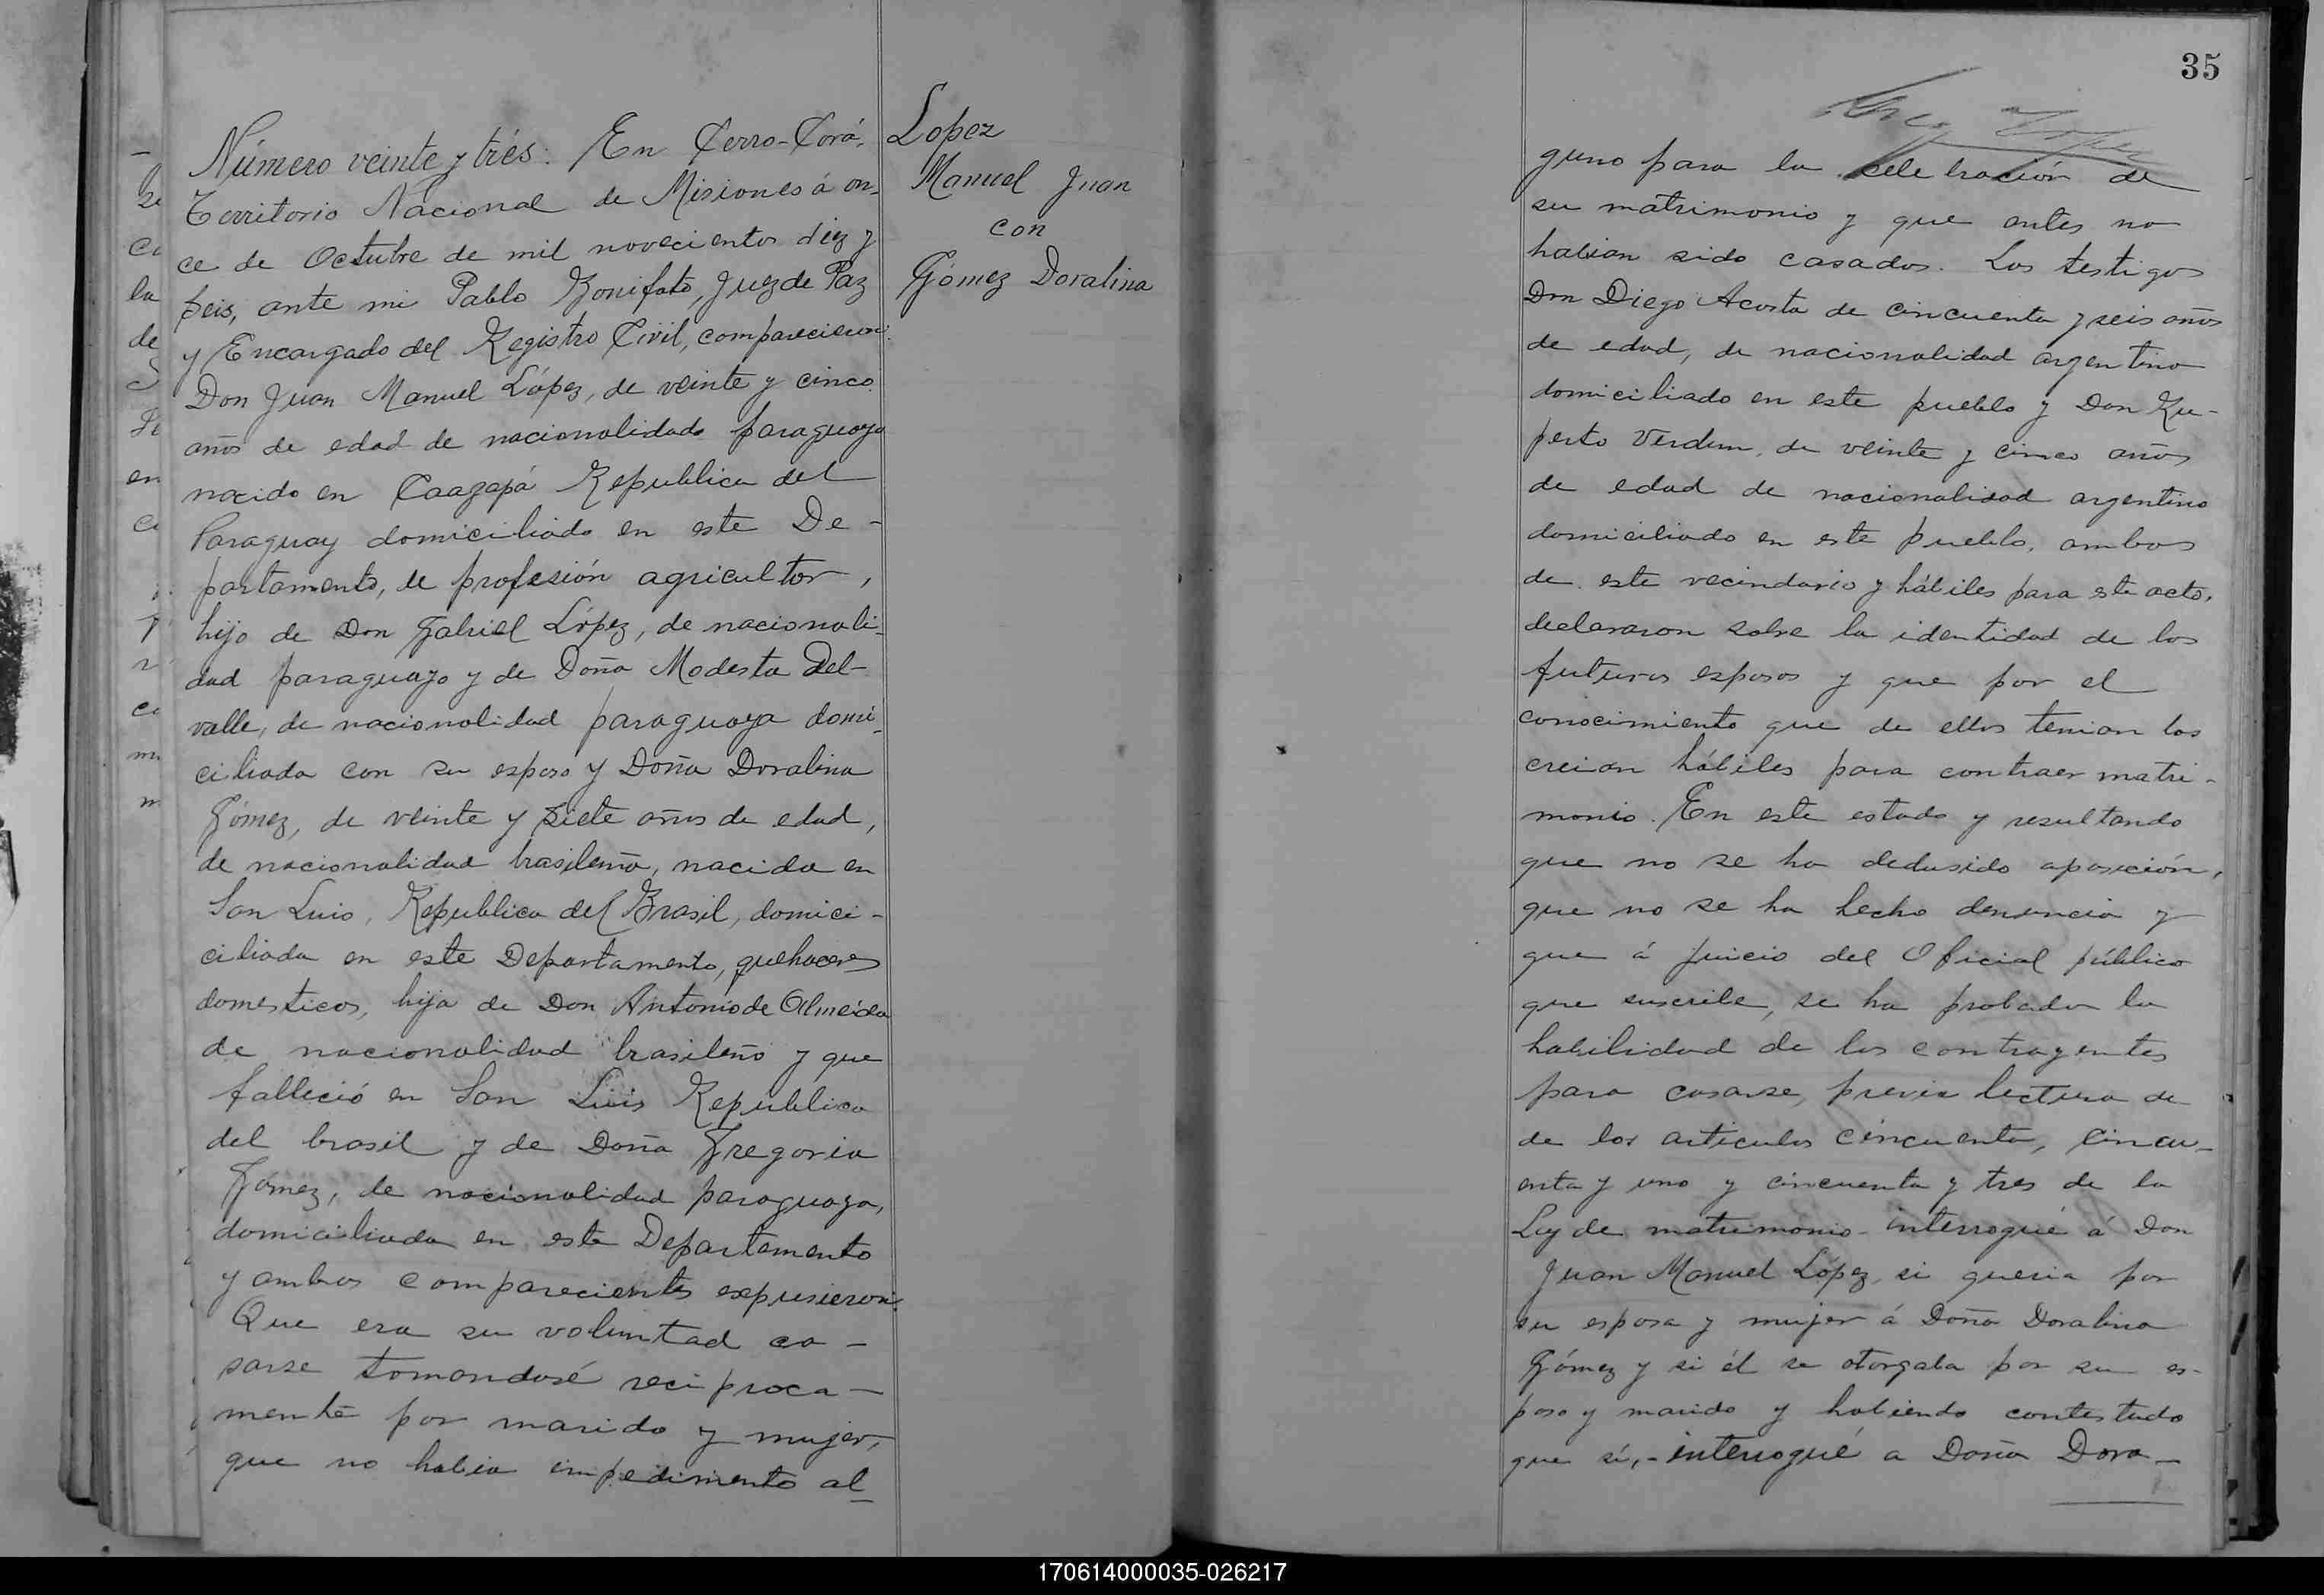 Número veinte y trés. En Cerro-Corá,
Territorio Nacional de Misiones á on-
ce de Octubre de mil novecientos diez y
seis, ante mi Pablo Bonifato, Juez de Paz
y Encargado del Registro Civil, comparecieron:
Don Juan Manuel López, de veinte y cinco
años de edad de nacionalidad paraguayo
nacido en Caazapá Republica del
Paraguay domiciliado en este De-
partamento, de profesión agricultor,
hijo de Don Gabriel López, de nacionali-
dad paraguayo y de Doña Modesta Del-
valle, de nacionalidad paraguaya domi-
ciliada con su esposo y Doña Doralina
Gómez, de veinte y siete años de edad,
de nacionalidad brasileña, nacida en
San Luis, Republica del Brasil, domici-
ciliada en este Departamento, quehaceres
domesticos, hija de Don Antonio de Almeida
de nacionalidad brasileño y que
falleció en San Luis Republica
del brasil y de Doña Gregoria
Gómez, de nacionalidad paraguaya,
domiciliada en este Departamento
y ambos comparecientes expusieron:
Que era su voluntad ca-
sarse tomandosé reciproca-
mente por marido y mujer,
que no habia impedimento al-
Lopez
Manuel Juan
con
Gómez Doralina
35
guno para la celebración de
su matrimonio y que antes no
habian sido casados. Los testigos
Don Diego Acosta de cincuenta y seis años
de edad, de nacionalidad argentino
domiciliado en este pueblo y Don Ru-
perto Verdun, de veinte y cinco años
de edad de nacionalidad argentino
domiciliado en este pueblo, ambos
de este vecindario y hábiles para este acto,
declararon sobre la identidad de los
futuros esposos y que por el
conocimiento que de ellos tenian los
creian hábiles para contraer matri-
monio. En este estado y resultando
que no se ha dedusido aposición,
que no se ha hecho denuncia y
que á juicio del Oficial público
que suscribe, se ha probado la
habilidad de los contrayentes
para casarse, previa lectura de
de los articulos cincuenta, cincu-
enta y uno y cincuenta y tres de la
Ley de matrimonio - interrogué á Don
Juan Manuel López, si queria por
su esposa y mujer á Doña Doralina
Gómez y si él se otorgaba por su es-
poso y marido y habiendo contestado
que sí, - interrogué a Doña Dora-
170614000035-026217